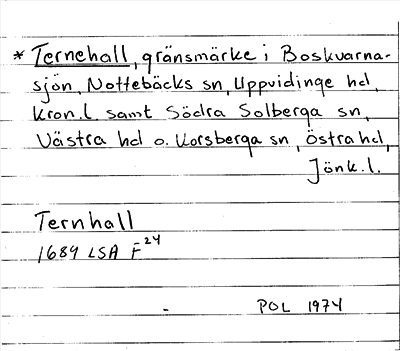 * Ternehall, gränsmärke i Boskvarna-
sjön, Nottebäcks sn, Uppvidinge hd,
Kron.l. samt Södra Solberga sn,
Västra hd o. Korsberga sn, Östra hd,
Jönk.l.
Ternhall
1689 LSA F24
- POL 1974